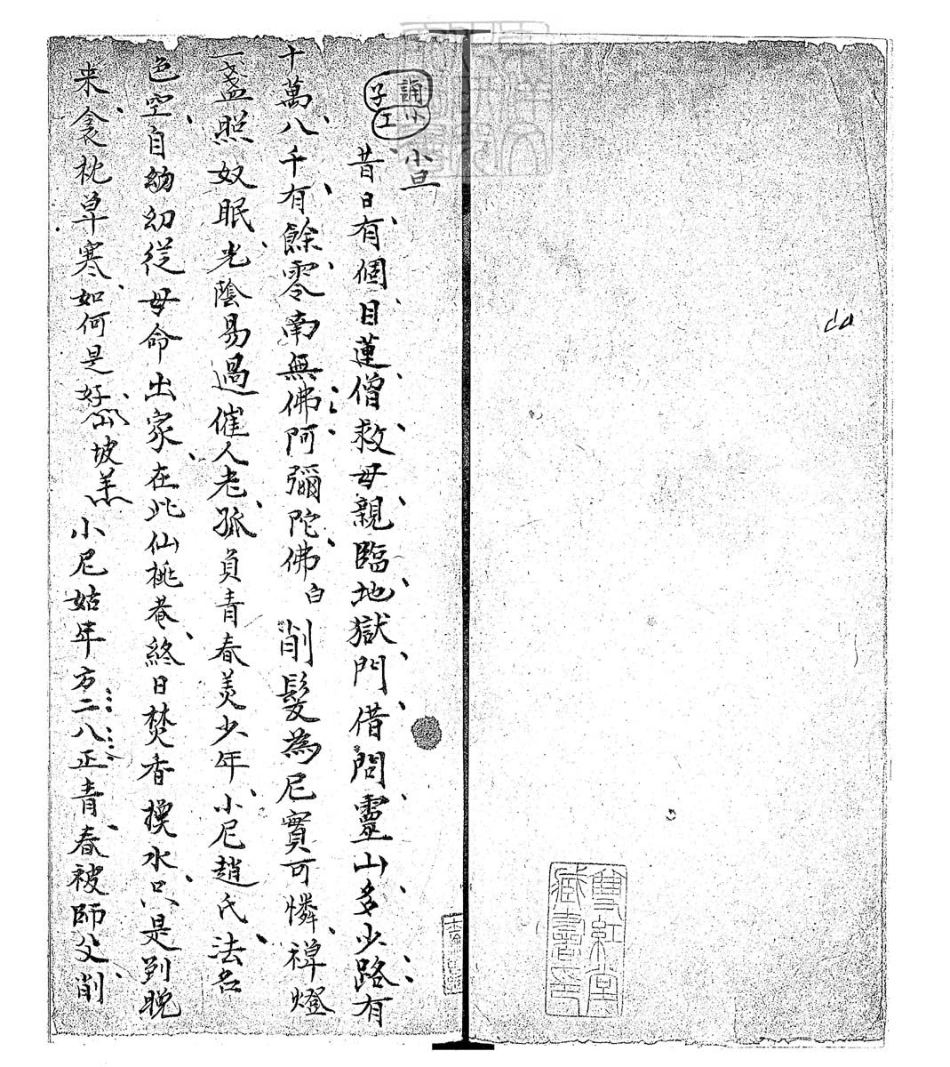 小旦
昔日有個目蓮僧救母親臨地獄門借問靈山多少路有
十萬八千有餘零南無佛阿彌陀佛白削髮為尼實可憐禅燈
一盞照奴眠光陰易過催人老孤負青春美少年小尼趙氏法名
色空自幼幼從母命出家在此仙桃菴終日焚香換水只是到晚
来衾枕单寒如何是好山坡羊小尼姑年方二八正青春被師父削
雙紅堂
藏書印